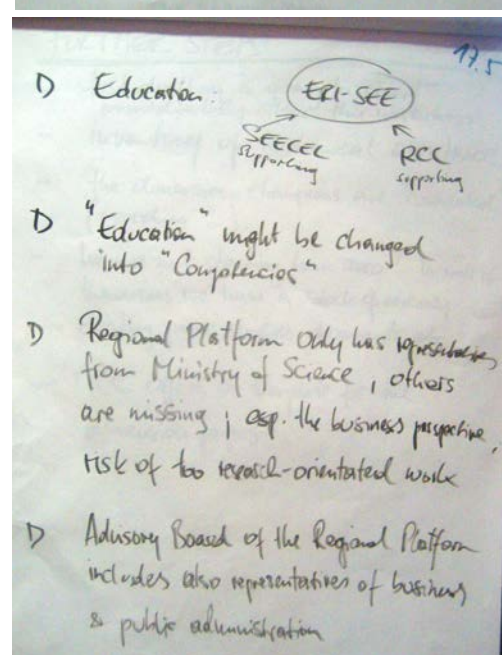 17.5
D Education. ERI-SEE
SEECEL RCC
supporting supporting
D "Education" might be changed
into "Competencies"
D Regional Platform only has representatives
from Ministry of Science, others
are missing; esp. the business perspective,
risk of too research-orientated work
D Advisory Board of the Regional Platform
includes also representatives of business
& public administration